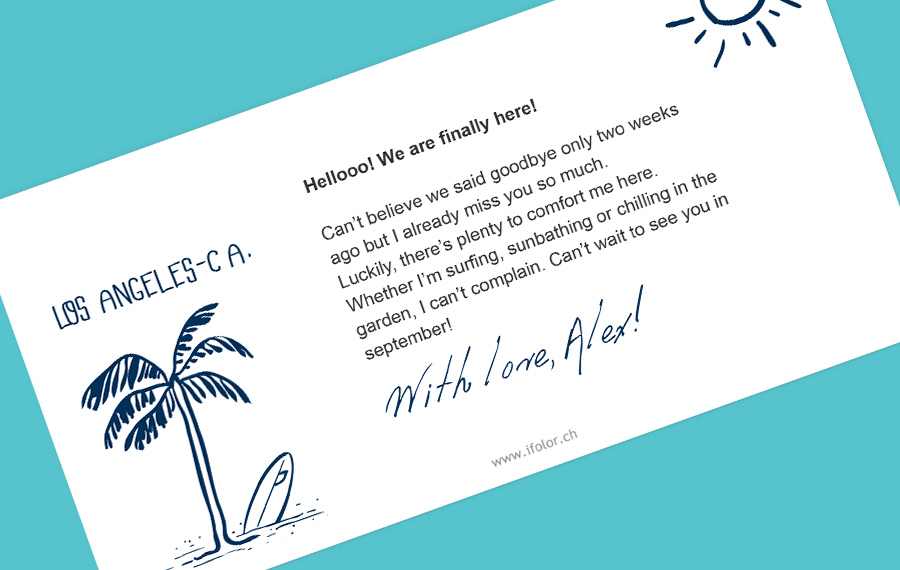 Hellooo! We are finally here!
Can't believe we said goodbye only two weeks
ago but I already miss you so much.
Luckily, there's plenty to comfort me here.
Whether I'm surfing, sunbathing or chilling in the
garden, I can't complain. Can't wait to see you in
september!
With love, Alex!
LOS ANGELES-C A.
www.ifolor.ch